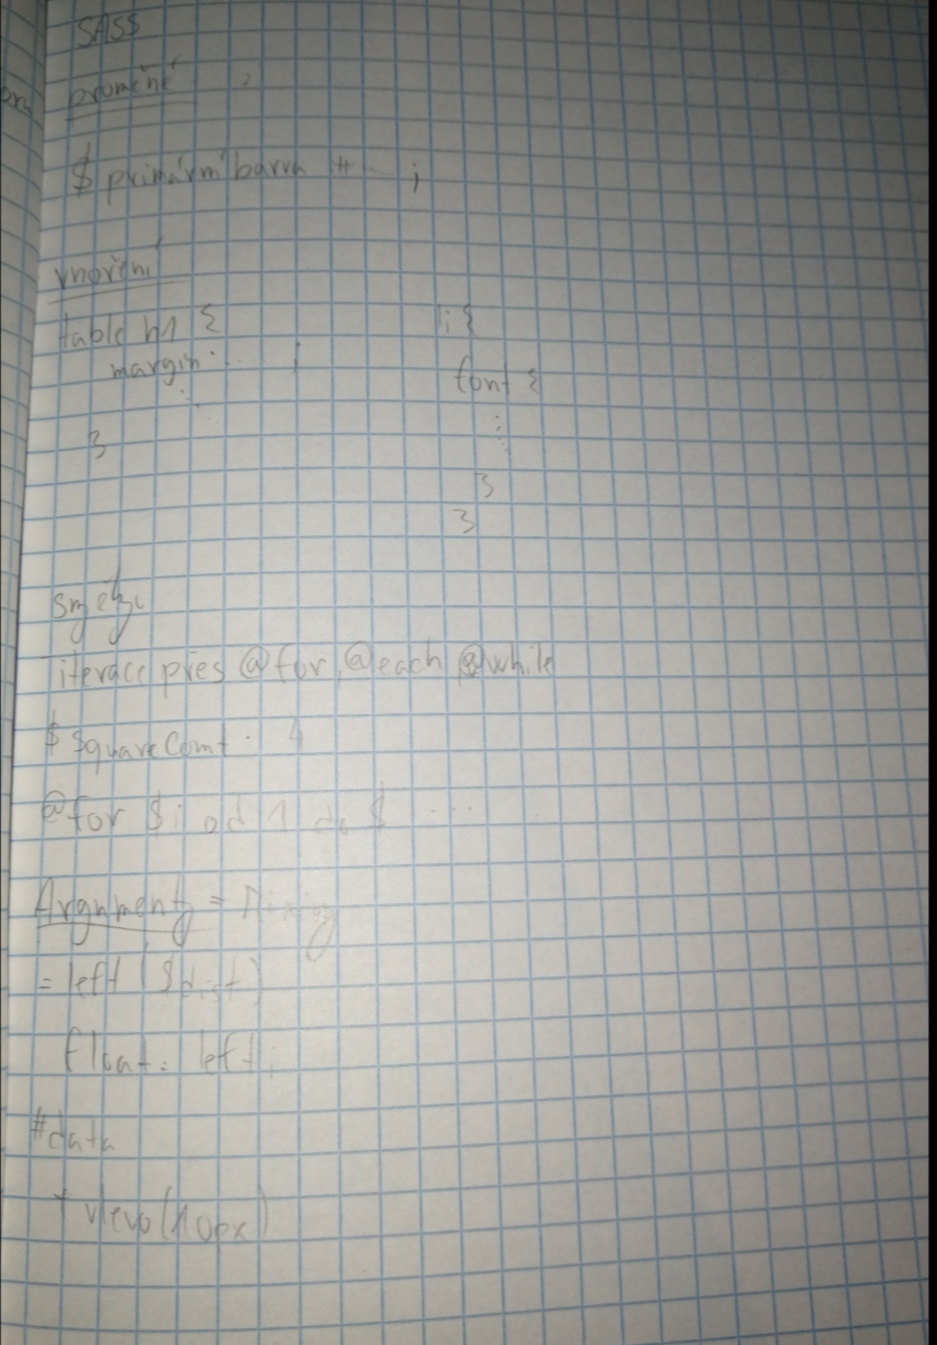 SASS
proměné
$ primární barva # ;
vnoření
table h1 {
margin: ... ;
}
li {
font {
}
}
smyčky
iterace přes @for, @each @while
$ squareCount : 4
@for $i od 1 do $ ...
Argumenty = Mixiny
= left ($dist)
float: left;
#data
+ vlevo(10px)